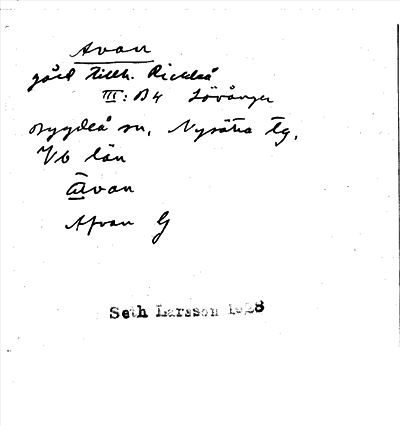 Avan
gård tillh. Rickleå
III: B4 Lövånger
Bygdeå sn, Nysätra tg,
Vb län
a̲van
Afvan G
Seth Larsson 1928